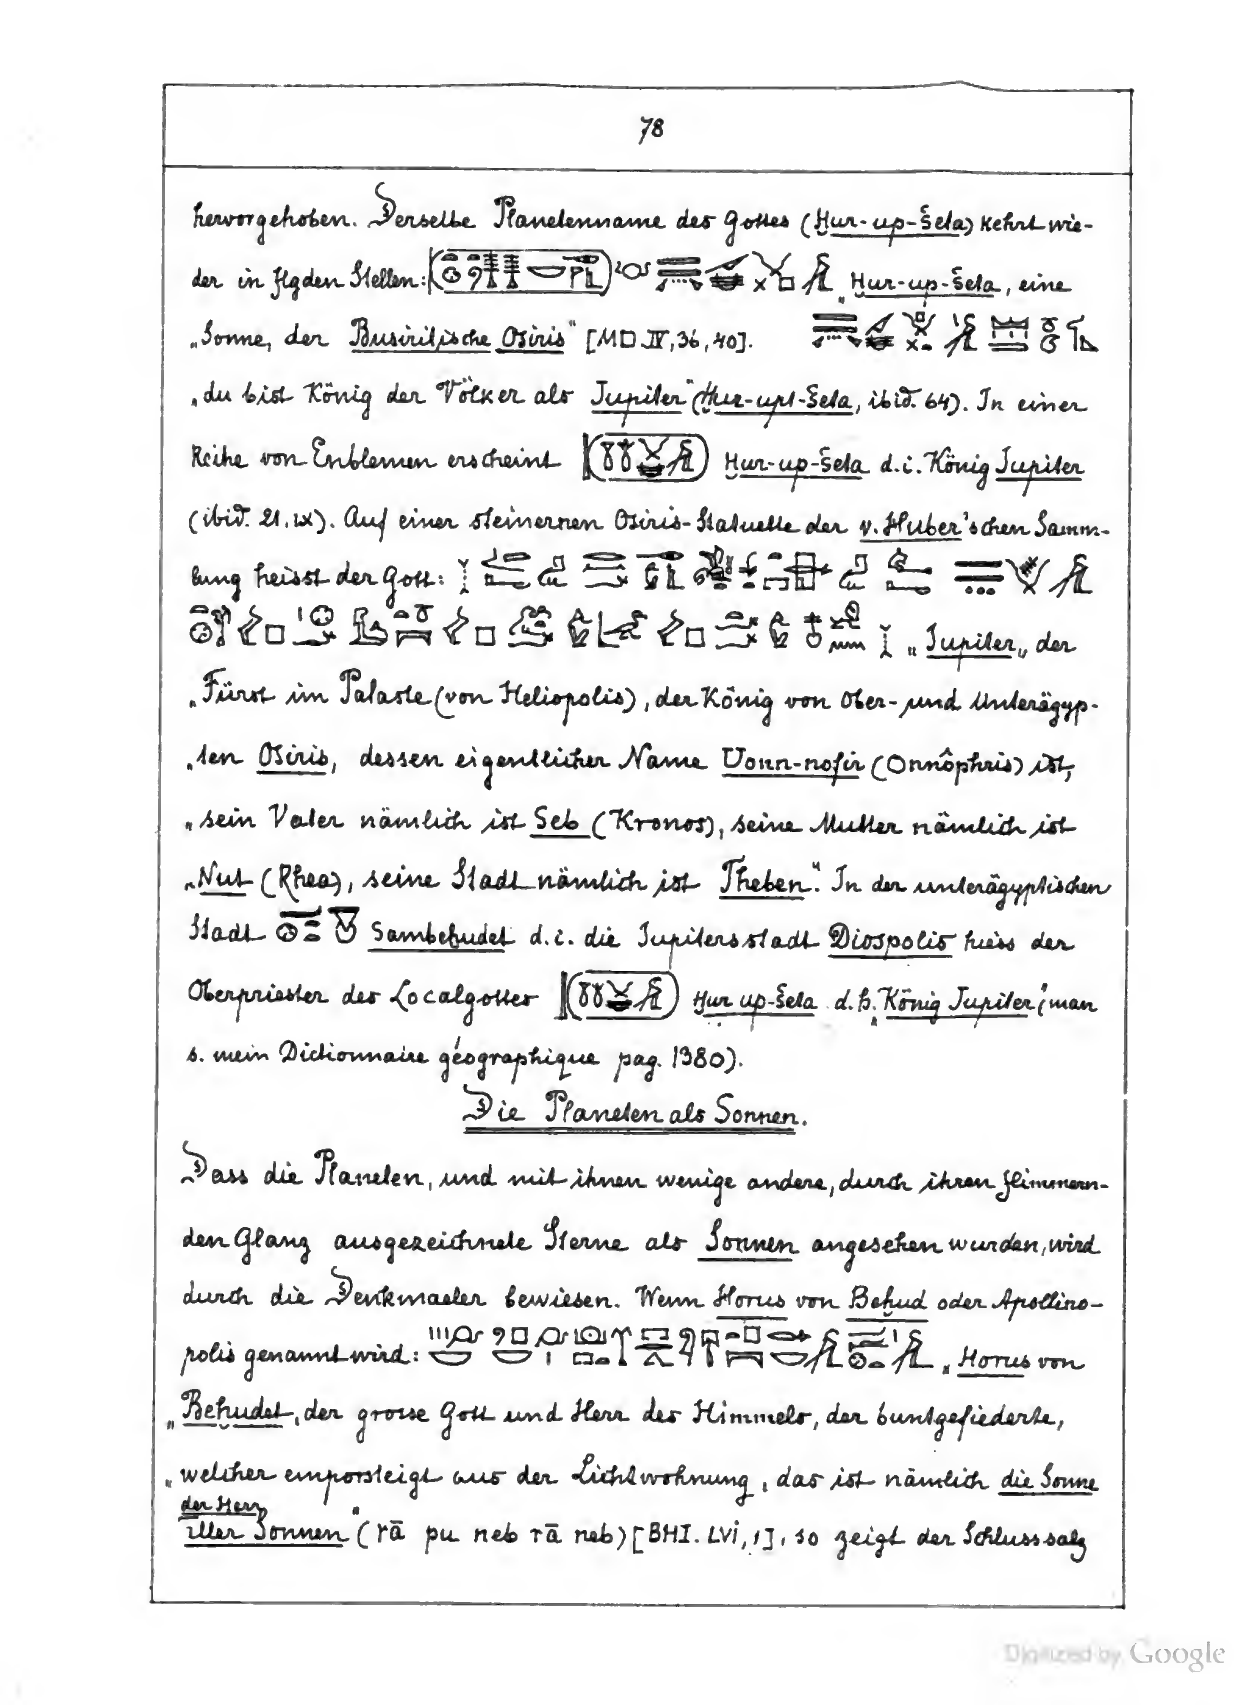 78
hervorgehoben. Derselbe Planetenname des Gottes (Ḥur-up-šeta) kehrt wie-
der in flgden Stellen: „Ḥur-up-šeta, eine
„Sonne, der Busiritische Osiris" [MD. IV, 36, 40].
„du bist König der Völker als Jupiter" (Ḥur-upt-šeta, ibid. 64). In einer
Reihe von Emblemen erscheint Ḥur-up-šeta d.i. König Jupiter
(ibid. 21. IX). Auf einer steinernen Osiris-Statuette der v. Huber'schen Samm-
lung heisst der Gott:
„Jupiter„ der
„Fürst im Palaste (von Heliopolis), der König von Ober- und Unterägyp-
„ten Osiris, dessen eigentlicher Name Uonn-nofir (Onnôphris) ist,
„sein Vater nämlich ist Seb (Kronos), seine Mutter nämlich ist
„Nut (Rhea), seine Stadt nämlich ist Theben". In der unterägyptischen
Stadt Sambeḥudet d.i. die Jupitersstadt Diospolis hiess der
Oberpriester des Localgottes Ḥur up-šeta d.h. „König Jupiter" (man
s. mein Dictionnaire géographique pag. 1380).
Die Planeten als Sonnen.
Dass die Planeten, und mit ihnen wenige andere, durch ihren flimmern-
den Glanz ausgezeichnete Sterne als Sonnen angesehen wurden, wird
durch die Denkmaeler bewiesen. Wenn Horus von Beḥud oder Apollino-
polis genannt wird: „Horus von
„Beḥudet, der grosse Gott und Herr des Himmels, der buntgefiederte,
„welcher emporsteigt aus der Lichtwohnung, das ist nämlich die Sonne
der Herr
aller Sonnen" (rā pu neb rā neb) [BHI. LVI, 1], so zeigt der Schlusssatz
Digitized by Google